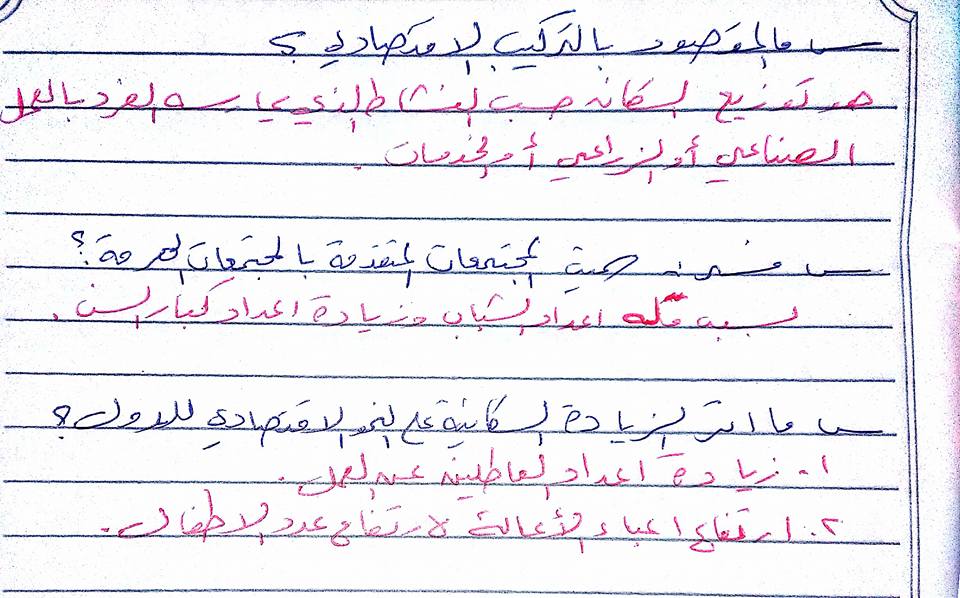 س ما المقصود بالتركيب الاقتصادي ؟
هو توزيع السكان حسب النشاط الذي يمارسه الفرد بالعمل
الصناعي أو الزراعي أو الخدمات .
س فسر : سميت المجتمعات المتقدمة بالمجتمعات الهرمة ؟
لسبب قله اعداد الشباب وزيادة اعداد كبار السن .
س ما اثر الزيادة السكانية على النمو الاقتصادي للدول ؟
١- زيادة اعداد العاطلين عن العمل .
٢. ارتفاع اعباء الأعالة لارتفاع عدد الاطفال .